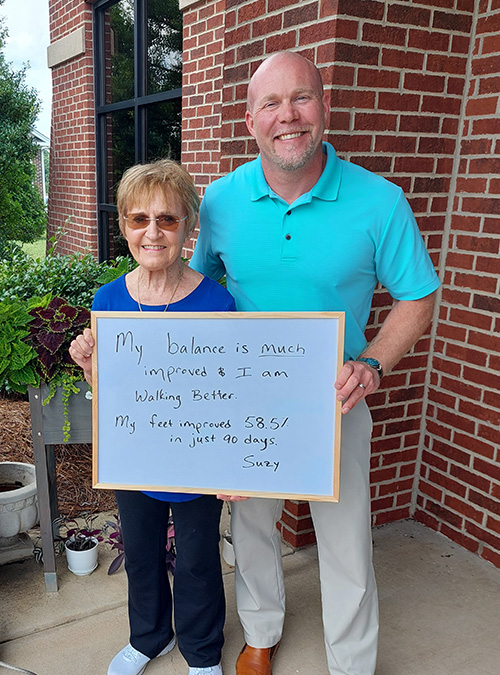 My balance is Much
improved & I am
Walking Better.
My feet improved 58.5%
in just 90 days.
Suzy